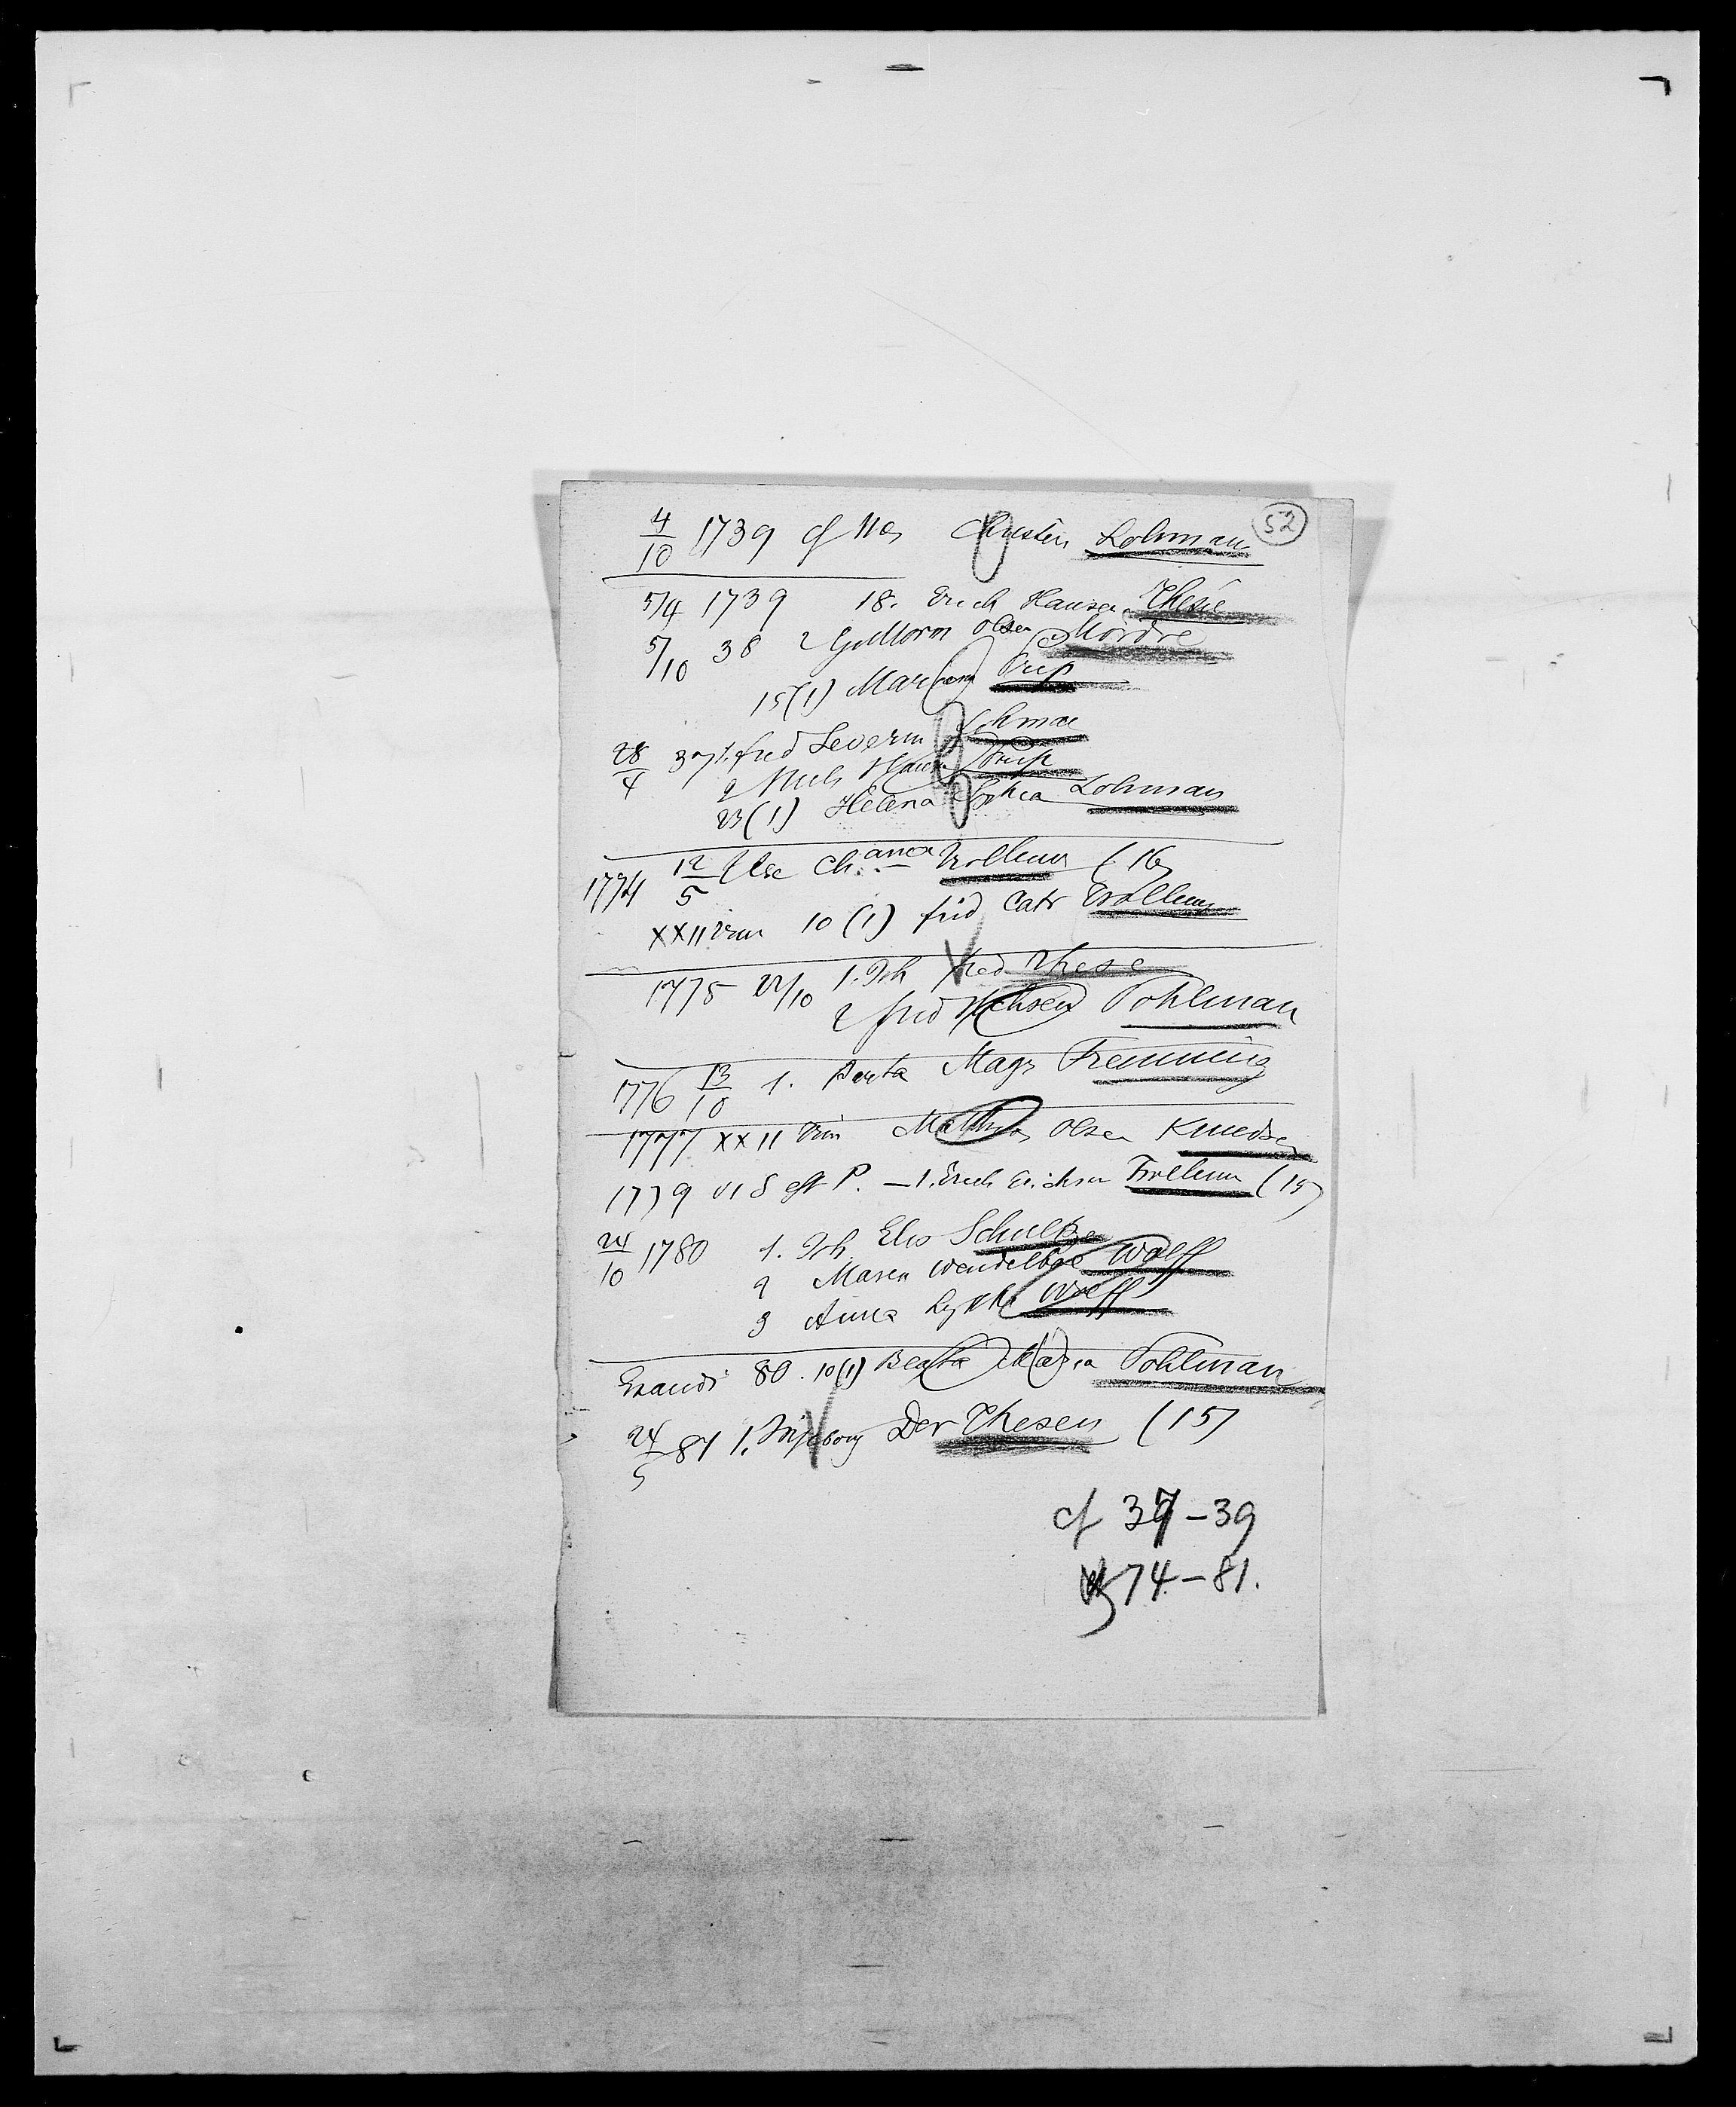 52
4/10 1739 cf Nos Christen Lohman
5/4 1739 18. Erich Hansen Thesie
5/10 38 2 Guttorm Olsen Mordre
15(1) Mar Prip
28/4 37 1. fred Severin Lohman
2 Niels Hans Prip
23(1) Helena Sophia Lohman
1774 12/5 Else Ch. anna Trollum (16
XXII Trin 10 (1) frid Catr Trollum
1775 22/10 1. Joh fred Thesen
2 frid Pohlman
1776 13/10 1. Berta Magr Fremming
1777 XXII Trin Mathias Olsen Knudsen
1779 VI S eft P. – 1. Erich Erichsen Trollum (15)
24/10 1780 1. Joh. Elis Schultze
2 Maren Wendelboe Wolff
3 Anna Lyche Wolff
Exaudi 80. 10(1) Beata Maria Pohlman
24/5 81 1. Ingeborg Dor Thesen (15)
cf 37–39
74–81.